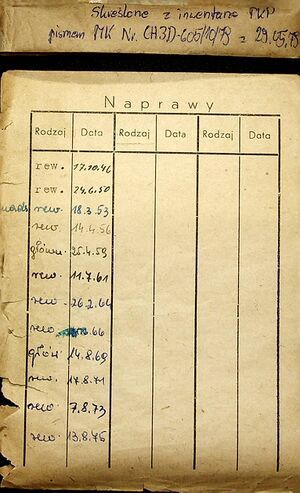 Skreślono z inwentarza PKP
pismem MK Nr. CH3D-605/10/79 z 29.05.79
Naprawy
Rodzaj Data Rodzaj Data Rodzaj Data
rew. 17.10.46
rew. 24.6.50
rew. 18.3.53
rew. 14.4.56
główn. 25.4.59
rew. 11.7.61
rew. 26.2.64
rew. 66
głów. 14.8.69
rew. 17.8.71
rew. 7.8.73
rew. 13.8.76